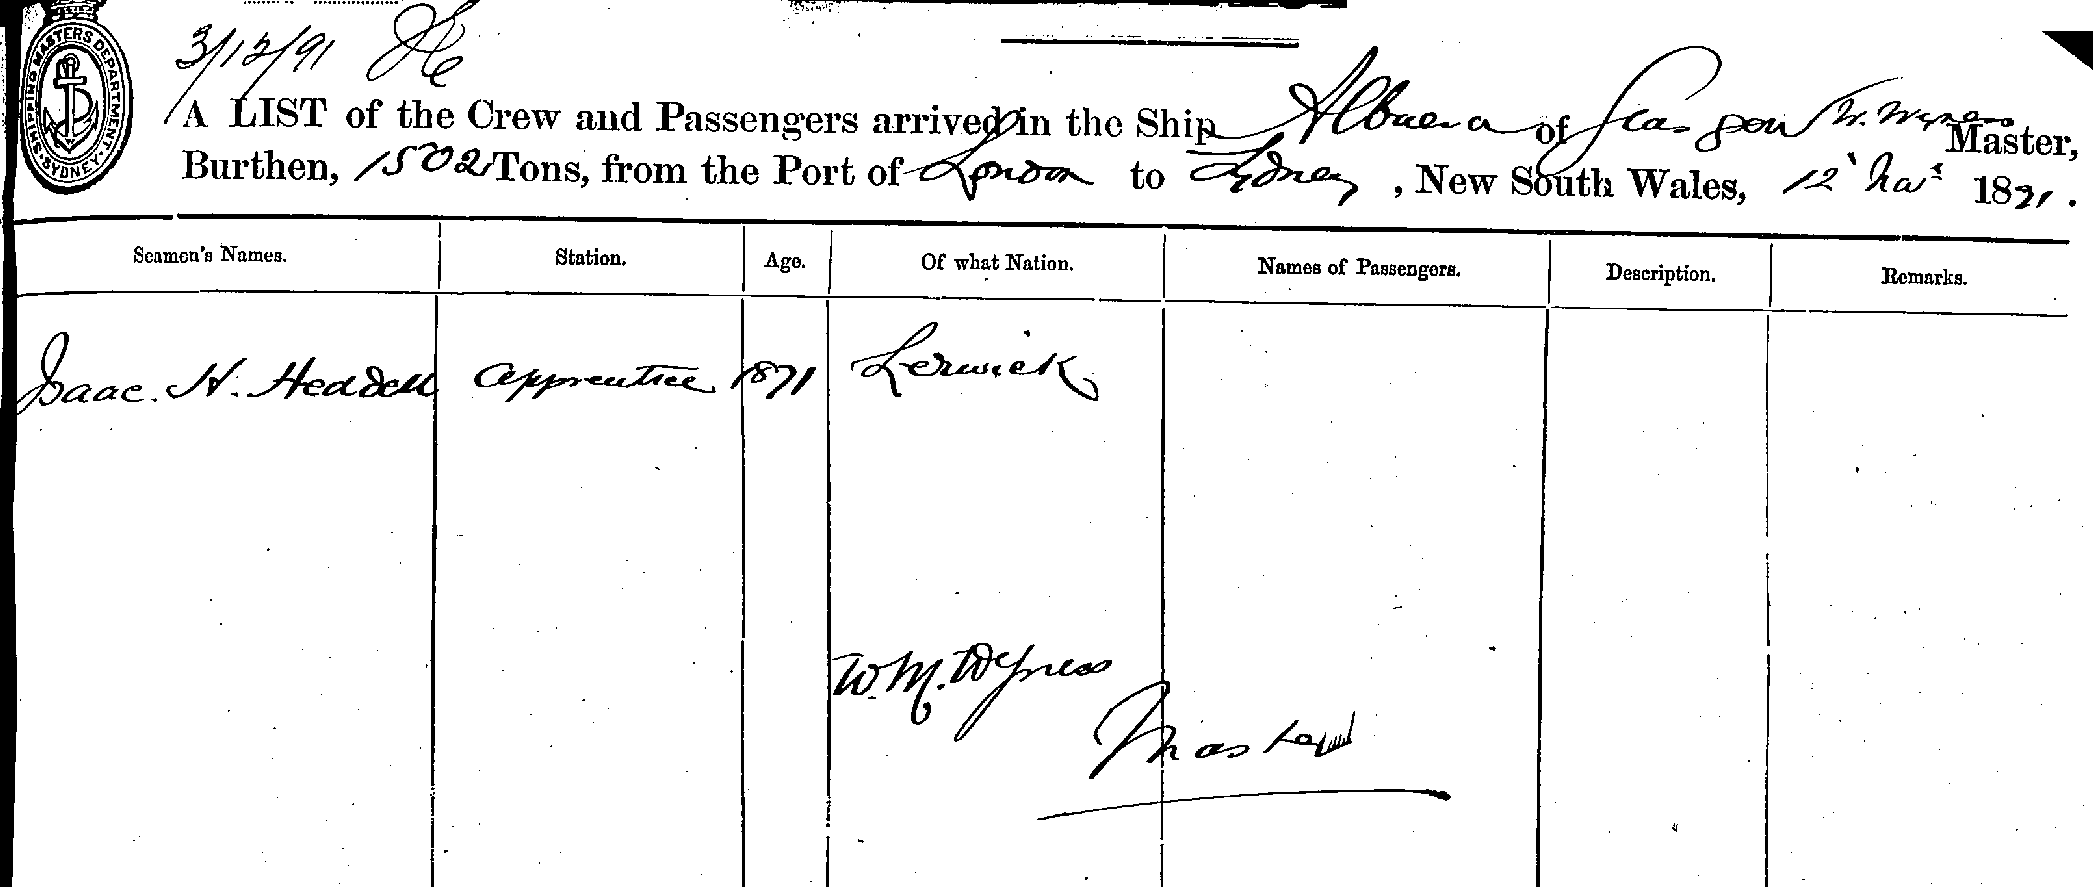 SHIPPING MASTERS DEPARTMENT. SYDNEY.
3/12/91
A LIST of the Crew and Passengers arrived in the Ship Albuera of Glasgow W. Wyness Master,
Burthen, 1502 Tons, from the Port of London to Sydney, New South Wales, 12th Novr 1891.
Seamen's Names. Station. Age. Of what Nation. Names of Passengers. Description. Remarks.
Isaac. H. Heddell apprentice 1871 Lerwick
W. M. Wyness
Master